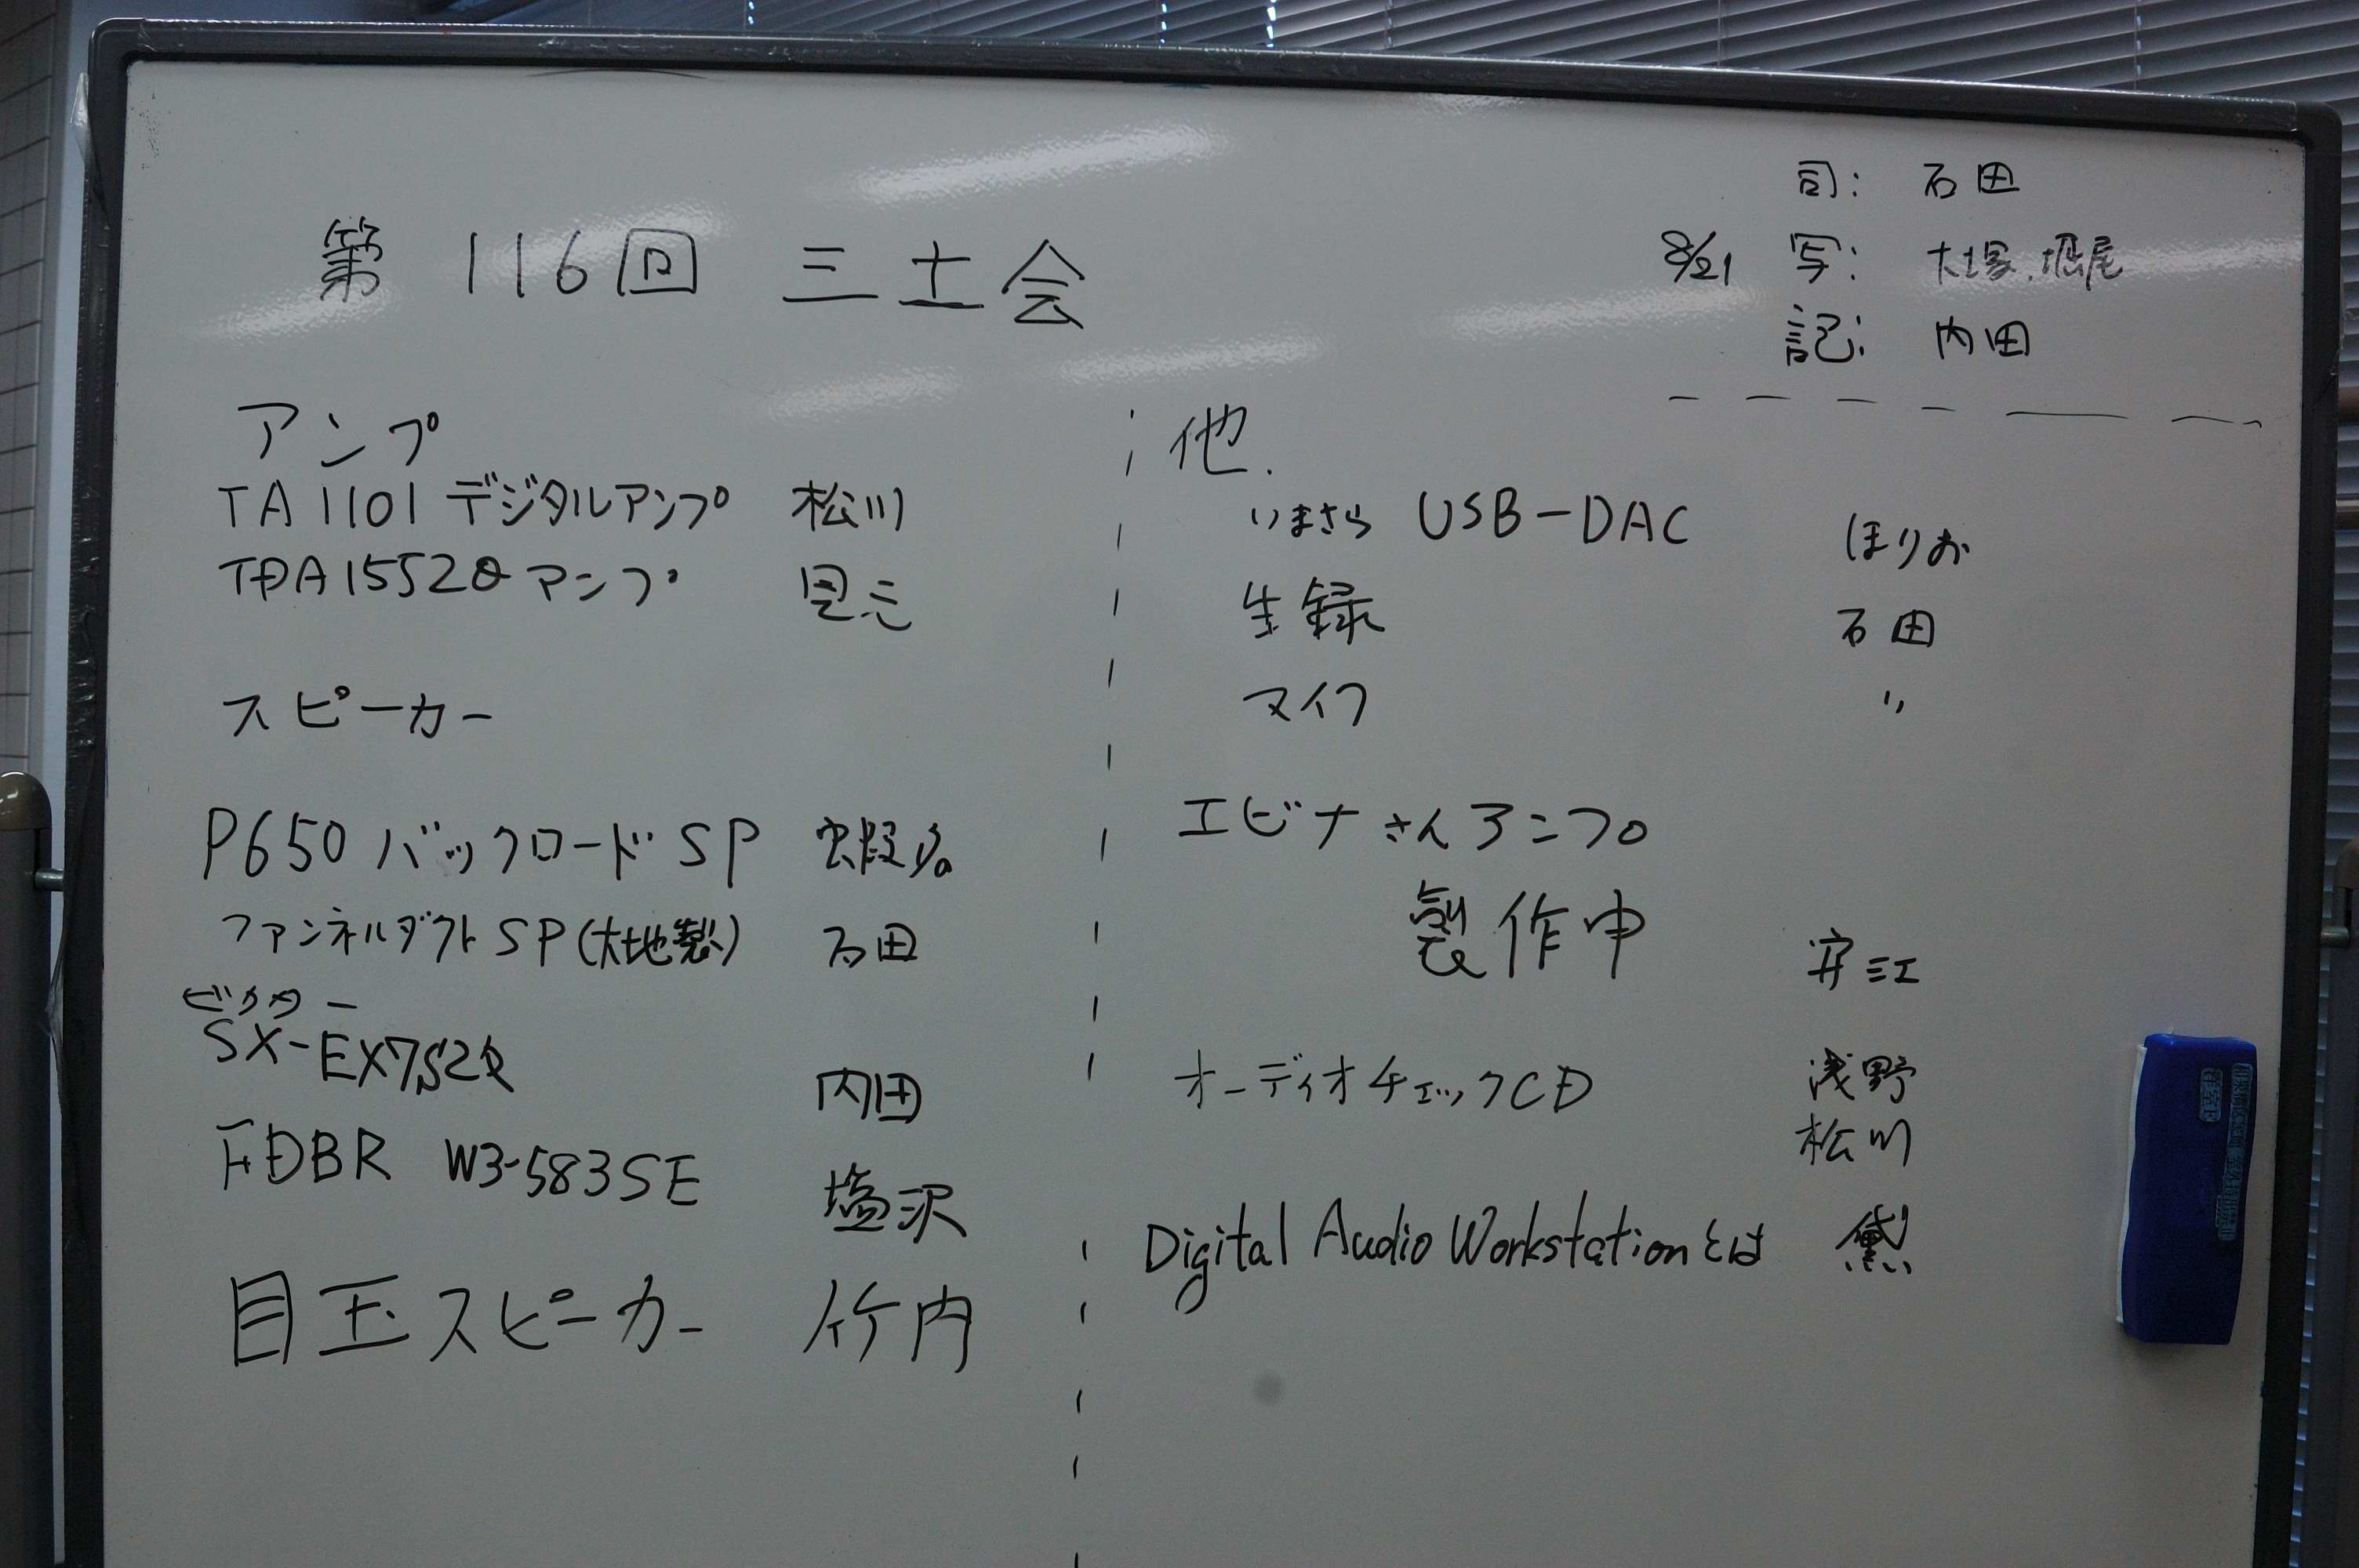 第 116回 三土会
司: 石田
8/21 写: 大塚、堀尾
記: 内田
アンプ
TA1101 デジタルアンプ 松川
TDA1552Q アンプ
スピーカー
P650 バックロードSP 蝦名
ファンネルダクトSP(大地製) 石田
ビクター
SX-EX7S2改 内田
FDBR W3-583SE 塩沢
目玉スピーカー 竹内
他.
いまさら USB-DAC ほりお
生録 石田
マイク 〃
エビナさんアンプ
製作中 安江
オーディオチェックCD 浅野
松川
Digital Audio Workstationとは 黛